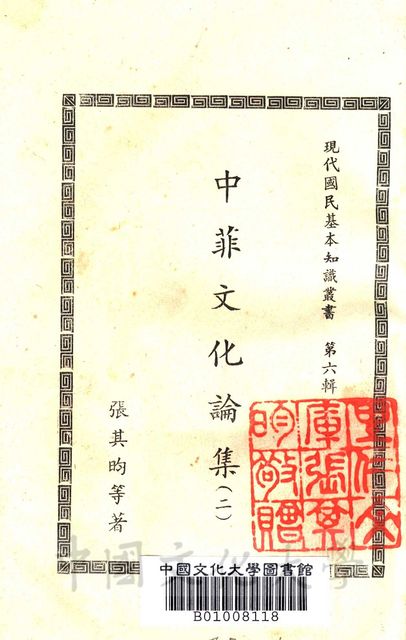 現代國民基本知識叢書 第六輯
中菲文化論集(二)
張其昀等著
中國文化大學
中國文化大學圖書館
B01008118